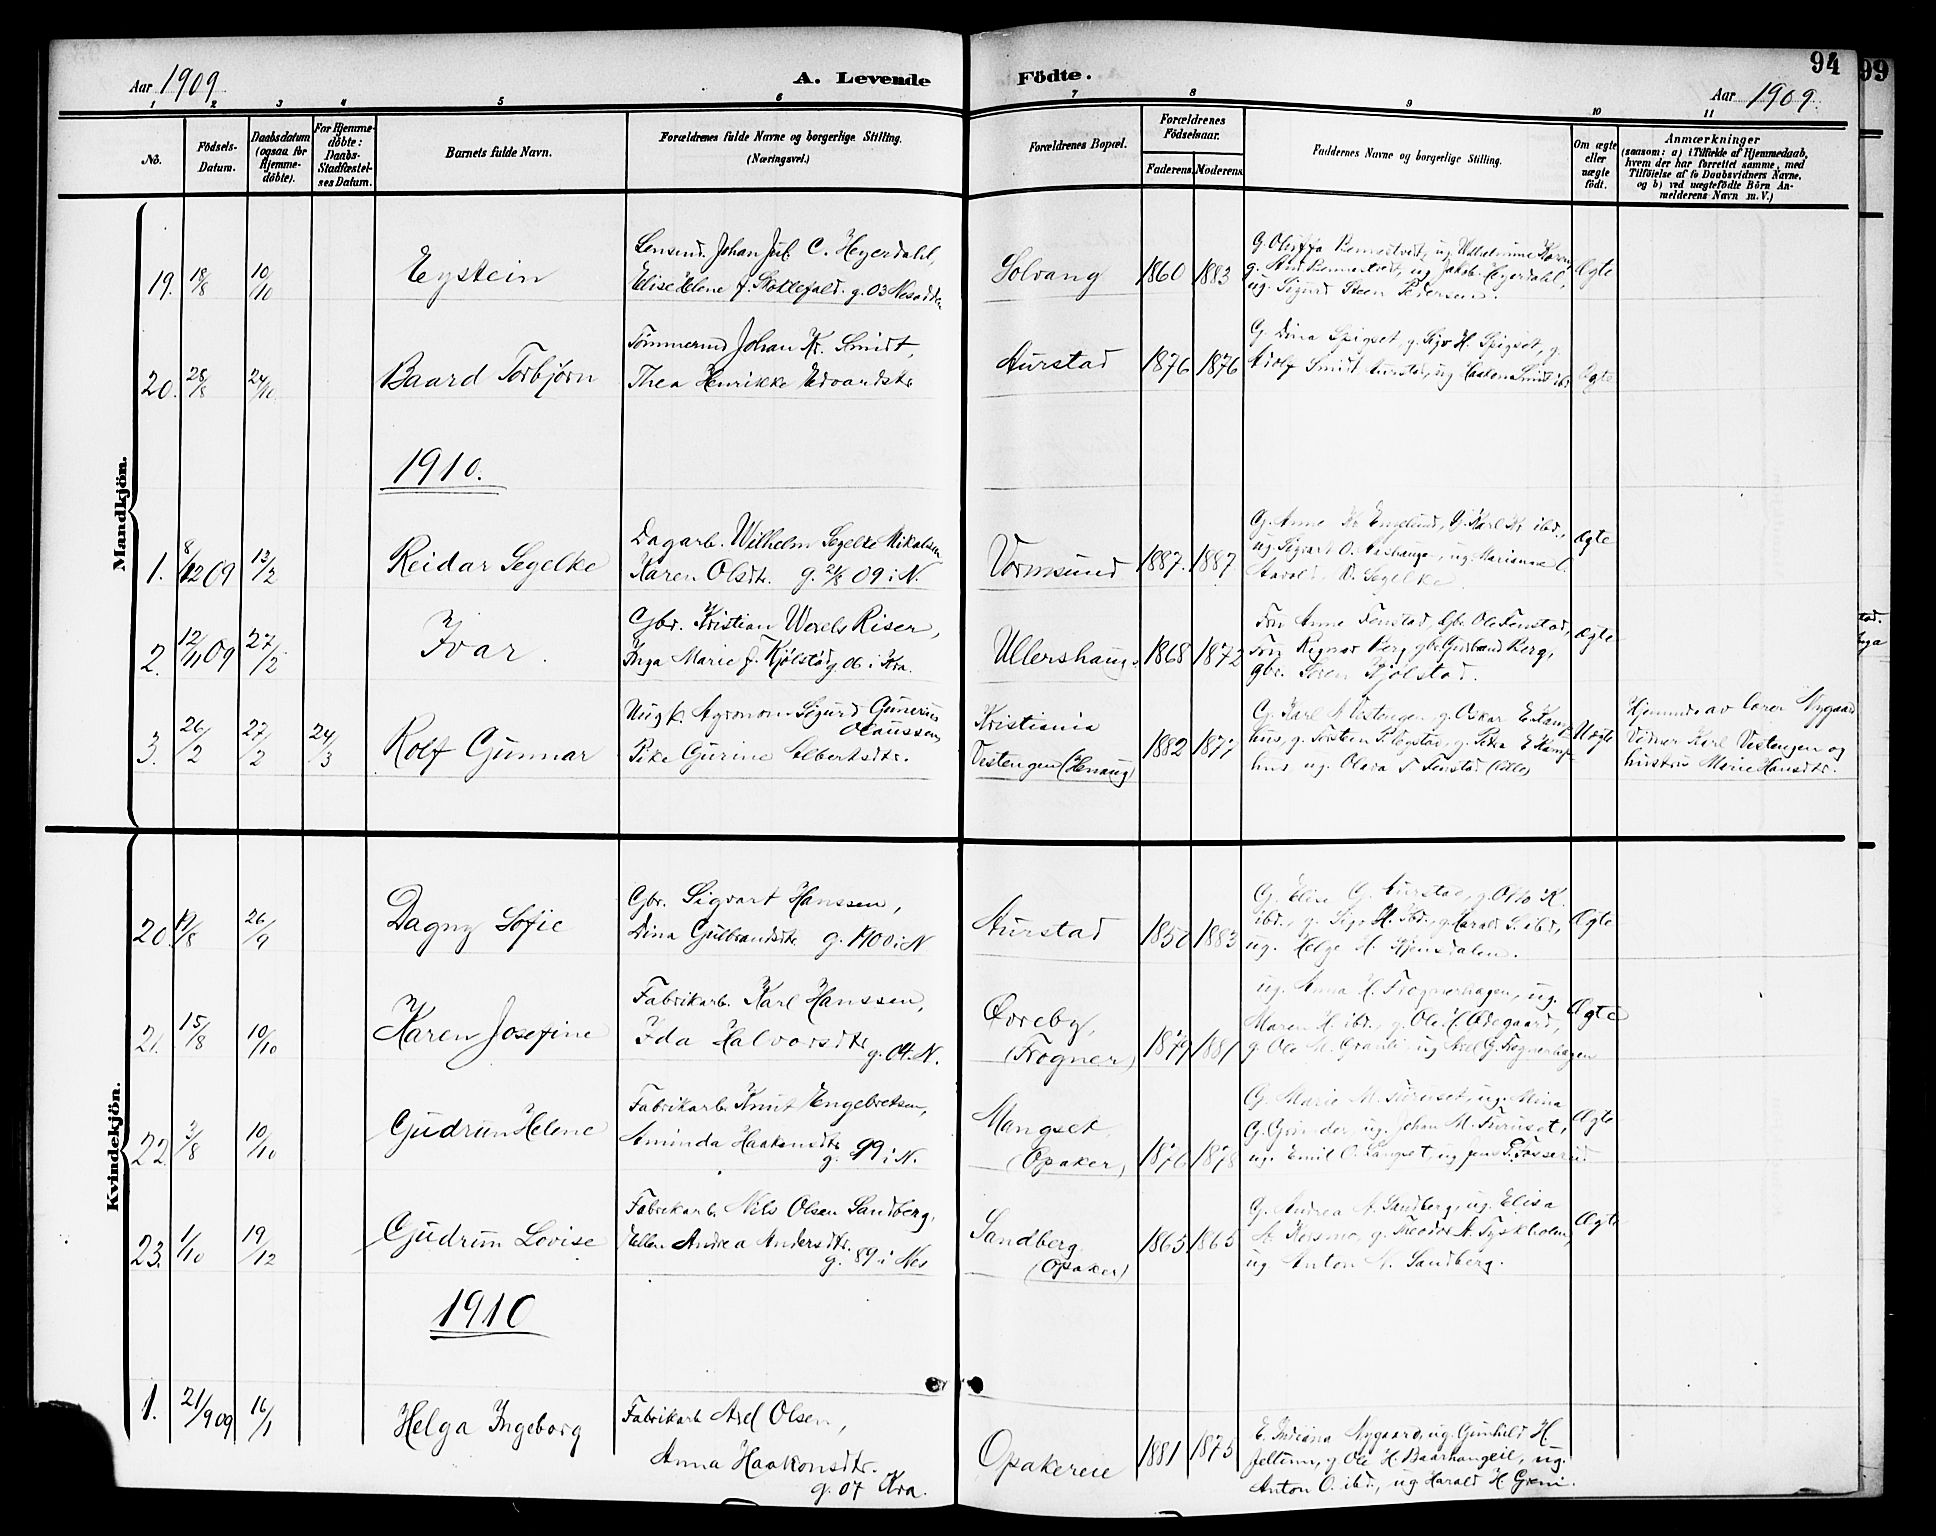 94
99
Aar 1909
A. Levende
Födte.
Aar 1909.
1 2 3 4 5 6 7 8 9 10 11
No.
Födsels-
Datum.
Daabsdatum
(ogsaa for
Hjemme-
döbte).
For Hjemme-
döbte:
Daabs-
Stadfæstel-
ses Datum.
Barnets fulde Navn.
Forældrenes fulde Navne og borgerlige Stilling.
(Næringsvei.)
Forældrenes Bopæl.
Forældrenes
Födselsaar.
Faderens.
Moderens.
Faddernes Navne og borgerlige Stilling.
Om ægte
eller
uægte
födt.
Anmærkninger
(saasom: a) i Tilfælde af Hjemmedaab,
hvem der har forrettet samme, med
Tilföielse af to Daabsvidners Navne,
og b) ved uægtefödte Börn An-
melderens Navn m. V.)
Mandkjön.
19. 18/8 10/10
Eystein
Lensmd. Johan Jul. C. Heyerdahl,
Elise Helene f. g. 03 Nesodden
Solvang
1860 1883
ug. Sigurd Steen Pedersen.
Ægte
20. 28/8 24/10
Baard Torbjørn
Tømmermd Johan Kr. Smidt,
Thea Henrikke Edvardsdtr.
Aurstad
1876 1876
G. Dina Spigset, g. Sigv. H. Spigset, g.
Adolf Smidt Aurstad, ug Haakon Smidt ibd.
Ægte
1910.
1. 8/12 09 13/2
Reidar Segelke
Dagarb. Wilhelm Segelke Mikalsen
Karen Olsdtr. g. 09 i N.
Vormsund
1887. 1887
G. Anne Kr. Englund, G. Karl Kr. ibd.,
ug. Sigvard O. ug. Marianne O.
Harald W. Segelke
Ægte
2. 12/11 09 27/2
Ivar.
Gbr. Kristian Wexels Riser,
Inga Marie f. Kjølstad g. 06 i Kra.
Ullershaug.
1868 1872
Fru Anne Fenstad, Gbr. Ole Fenstad,
Fru Ragna Berg, gbr. Gudbrand Berg,
gbr. Søren Kjølstad.
Ægte
3. 26/2 27/2 24/3
Rolf Gunnar
Ungk. Agronom Sigurd Gunerius
Claussen,
Pike Gurine Albertsdtr.
Kristiania
Vestengen (Henaug)
1882 1877
G. Karl A. Vestengen, g. Oskar E. Kamp-
hus, g. Torstein P. g. Petra E. Kamp-
hus, ug. Olava T. Fenstad (Lille)
Uægte
Hjemmed. av Nygaard
Vidner Karl Vestengen og
hustru Marie Hansdtr.
Kvindekjön.
20. 26/9
Dagny Sofie
Gbr. Sigvart Hanssen,
Dina Gulbrandsdtr. g. 1900 i N
Aurstad
1883
G. Elise G. Aurstad, g. Otto K.
ibd., g. Sigv. H. ibd., g. Harald S. ibd,
ug. Helge H.
Ægte
21. 15/8 10/10
Karen Josefine
Fabrikarb. Karl Hanssen,
Ida Halvorsdtr.
g. 04. N.
Øvreby,
(Frogner)
1879 1881
ug. Anna H. Frognerhagen, ug.
Maren H. ibd., g. Ole H. Ødegaard,
g. Ole M. ug Axel G. Frognerhagen
Ægte
22. 3/8 10/10
Gudrun Helene
Fabrikarb. Knut Engebretsen,
Aminda Haakensdtr.
g. 99 i N.
Mangset
(Opaker)
1876 1878
G. Marie M. Furuset, ug. Mina
G. Grinder, ug. Johan M. Furuset,
ug. Emil O. ug Jens P. Fosserud
Ægte
23. 1/10 19/12
Gudrun Lovise
Fabrikarb. Nils Olsen Sandberg,
Ellen Andrea Andersdtr.
g. 89 i Nes
Sandberg.
(Opaker)
1865. 1865
G. Andrea A. Sandberg, ug. Elisa
A. Korsmo, g. Teodor A. Tyskholen,
ug. Anton N. Sandberg.
Ægte
1910
1. 21/9 09 16/1
Helga Ingeborg
Fabrikarb. Axel Olsen,
Anna Haakonsdtr.
g. 07 Kra.
Opakereie
1881 1875
E. Indiana Nygaard, ug. Gunhild H.
g. Ole H. ug.
Anton O. ibd., ug Harald H. Greni.